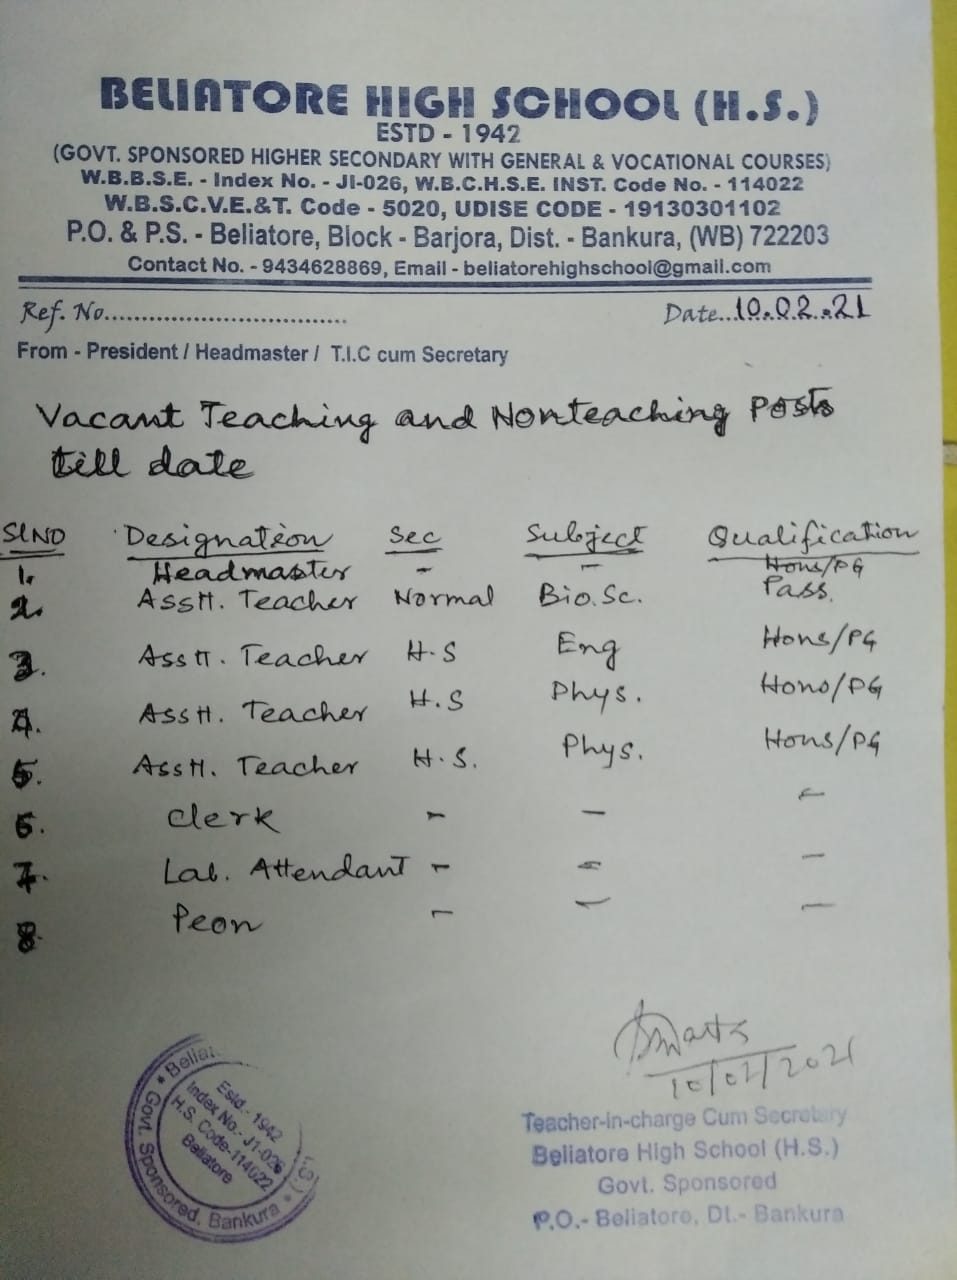 BELIATORE HIGH SCHOOL (H.S.)
ESTD - 1942
(GOVT. SPONSORED HIGHER SECONDARY WITH GENERAL & VOCATIONAL COURSES)
W.B.B.S.E. - Index No. - JI-026, W.B.C.H.S.E. INST. Code No. - 114022
W.B.S.C.V.E.&T. Code - 5020, UDISE CODE - 19130301102
P.O. & P.S. - Beliatore, Block - Barjora, Dist. - Bankura, (WB) 722203
Contact No. - 9434628869, Email - beliatorehighschool@gmail.com
Ref. No................................ Date...10.02.21
From - President / Headmaster / T.I.C cum Secretary
Vacant Teaching and Nonteaching Posts
till date
Sl NO Designation Sec Subject Qualification
1. Headmaster - - Hons/PG
2. Asstt. Teacher Normal Bio.Sc. Pass.
3. Asstt. Teacher H.S Eng Hons/PG
4. Asstt. Teacher H.S Phys. Hons/PG
5. Asstt. Teacher H.S. Phys. Hons/PG
6. Clerk - - -
7. Lab. Attendant - - -
8. Peon - - -
10/02/2021
Teacher-in-charge Cum Secretary
Beliatore High School (H.S.)
Govt. Sponsored
P.O.- Beliatore, Dt.- Bankura
Govt. Sponsored, Bankura
Estd.- 1942
Index No.- J1-026
H.S. Code-114022
Beliatore